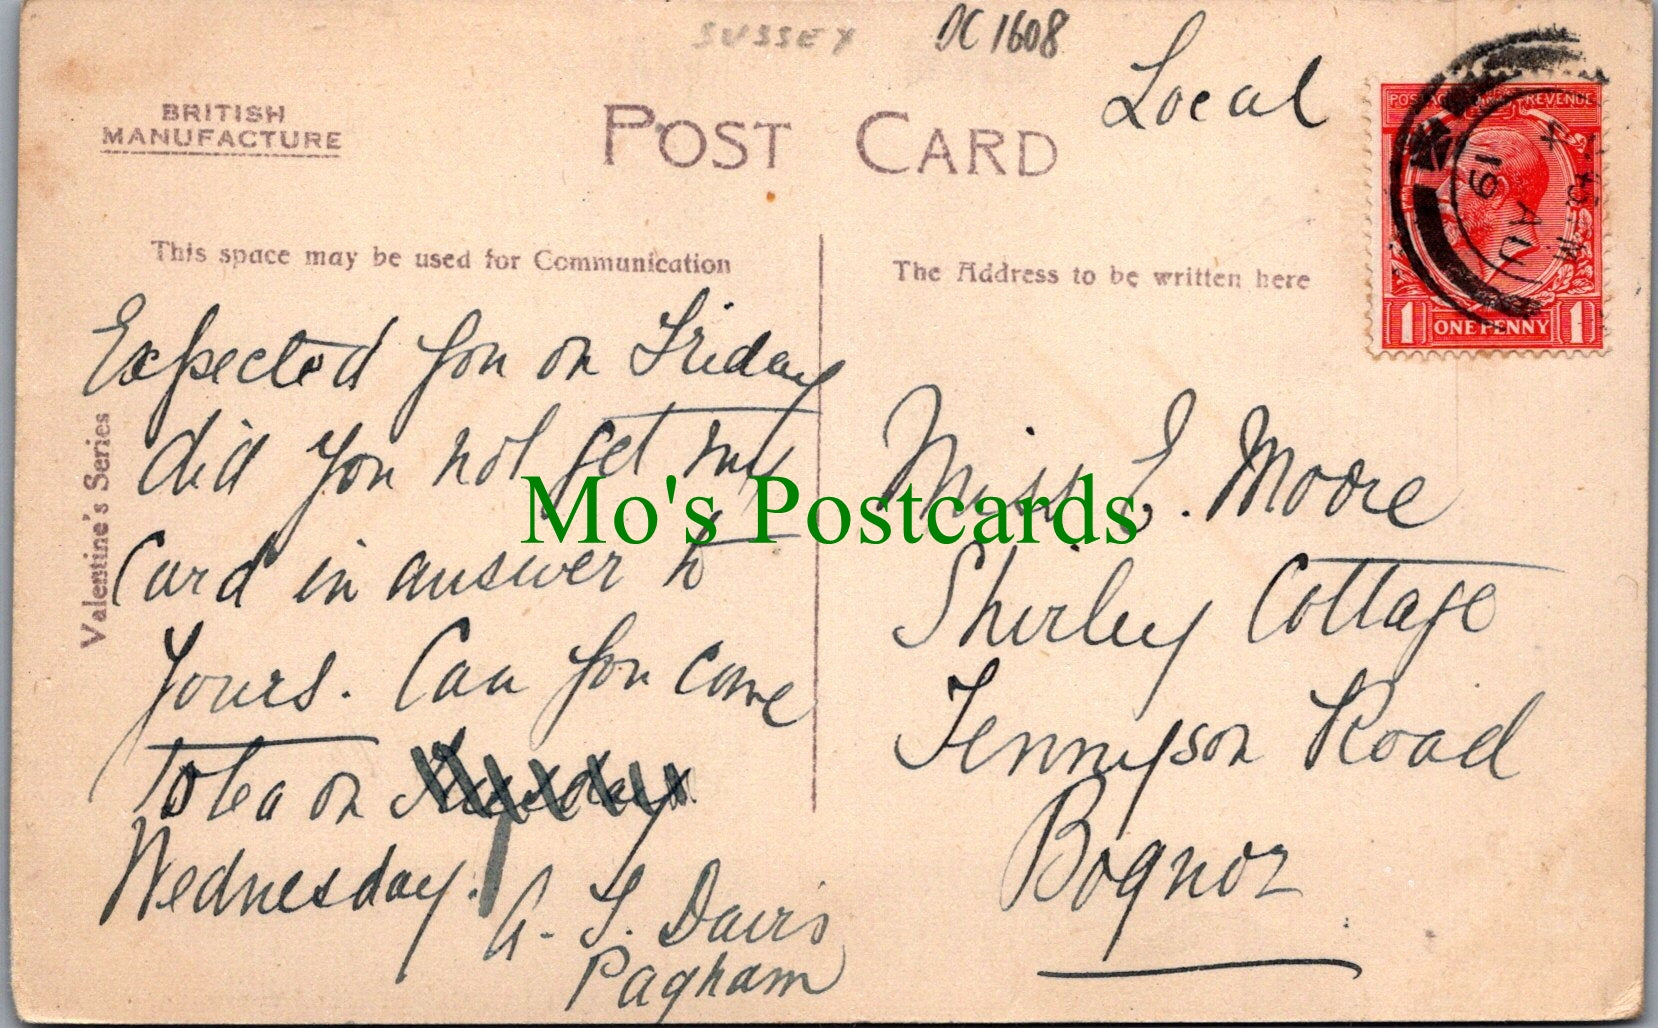 SUSSEX DC1608
Local
BRITISH
MANUFACTURE
POST CARD
POSTAGE REVENUE
19 AU
ONE PENNY
1 1
This space may be used for Communication
The Address to be written here
Valentine's Series
Expected you on Friday
did you not get my
Card in answer to
yours. Can you come
to tea on
Wednesday.
A. S. Davis
Pagham
Miss E. Moore
Shirley Cottage
Tennyson Road
Bognor
Mo's Postcards